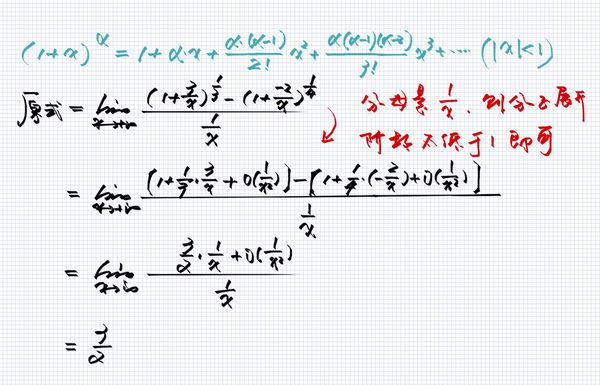 (1+x)^α = 1+α·x+\frac{α·(α-1)}{2!}x²+\frac{α(α-1)(α-2)}{3!}x³+⋯ (|x|<1)
原式 = \lim_{x→+∞} \frac{(1+\frac{3}{x})^{\frac{1}{3}} - (1+\frac{-2}{x})^{\frac{1}{4}}}{\frac{1}{x}}
分母是\frac{1}{x}, 则分子展开
阶数不低于1即可
= \lim_{x→+∞} \frac{[1+\frac{1}{3}·\frac{3}{x}+o(\frac{1}{x²})]-[1+\frac{1}{4}·(-\frac{2}{x})+o(\frac{1}{x²})]}{\frac{1}{x}}
= \lim_{x→+∞} \frac{\frac{3}{2}·\frac{1}{x}+o(\frac{1}{x²})}{\frac{1}{x}}
= \frac{3}{2}